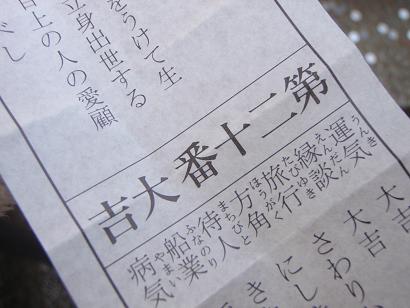 をうけて生
立身出世する
目上の人の愛顧
べし
第二十番 大吉
うんき
運気 大
えんだん
縁談 大吉
たびゆき
旅行 さわり
ほうがく
方角 にし
まちびと
待人 き
ふなのり
船業
やまい
病気